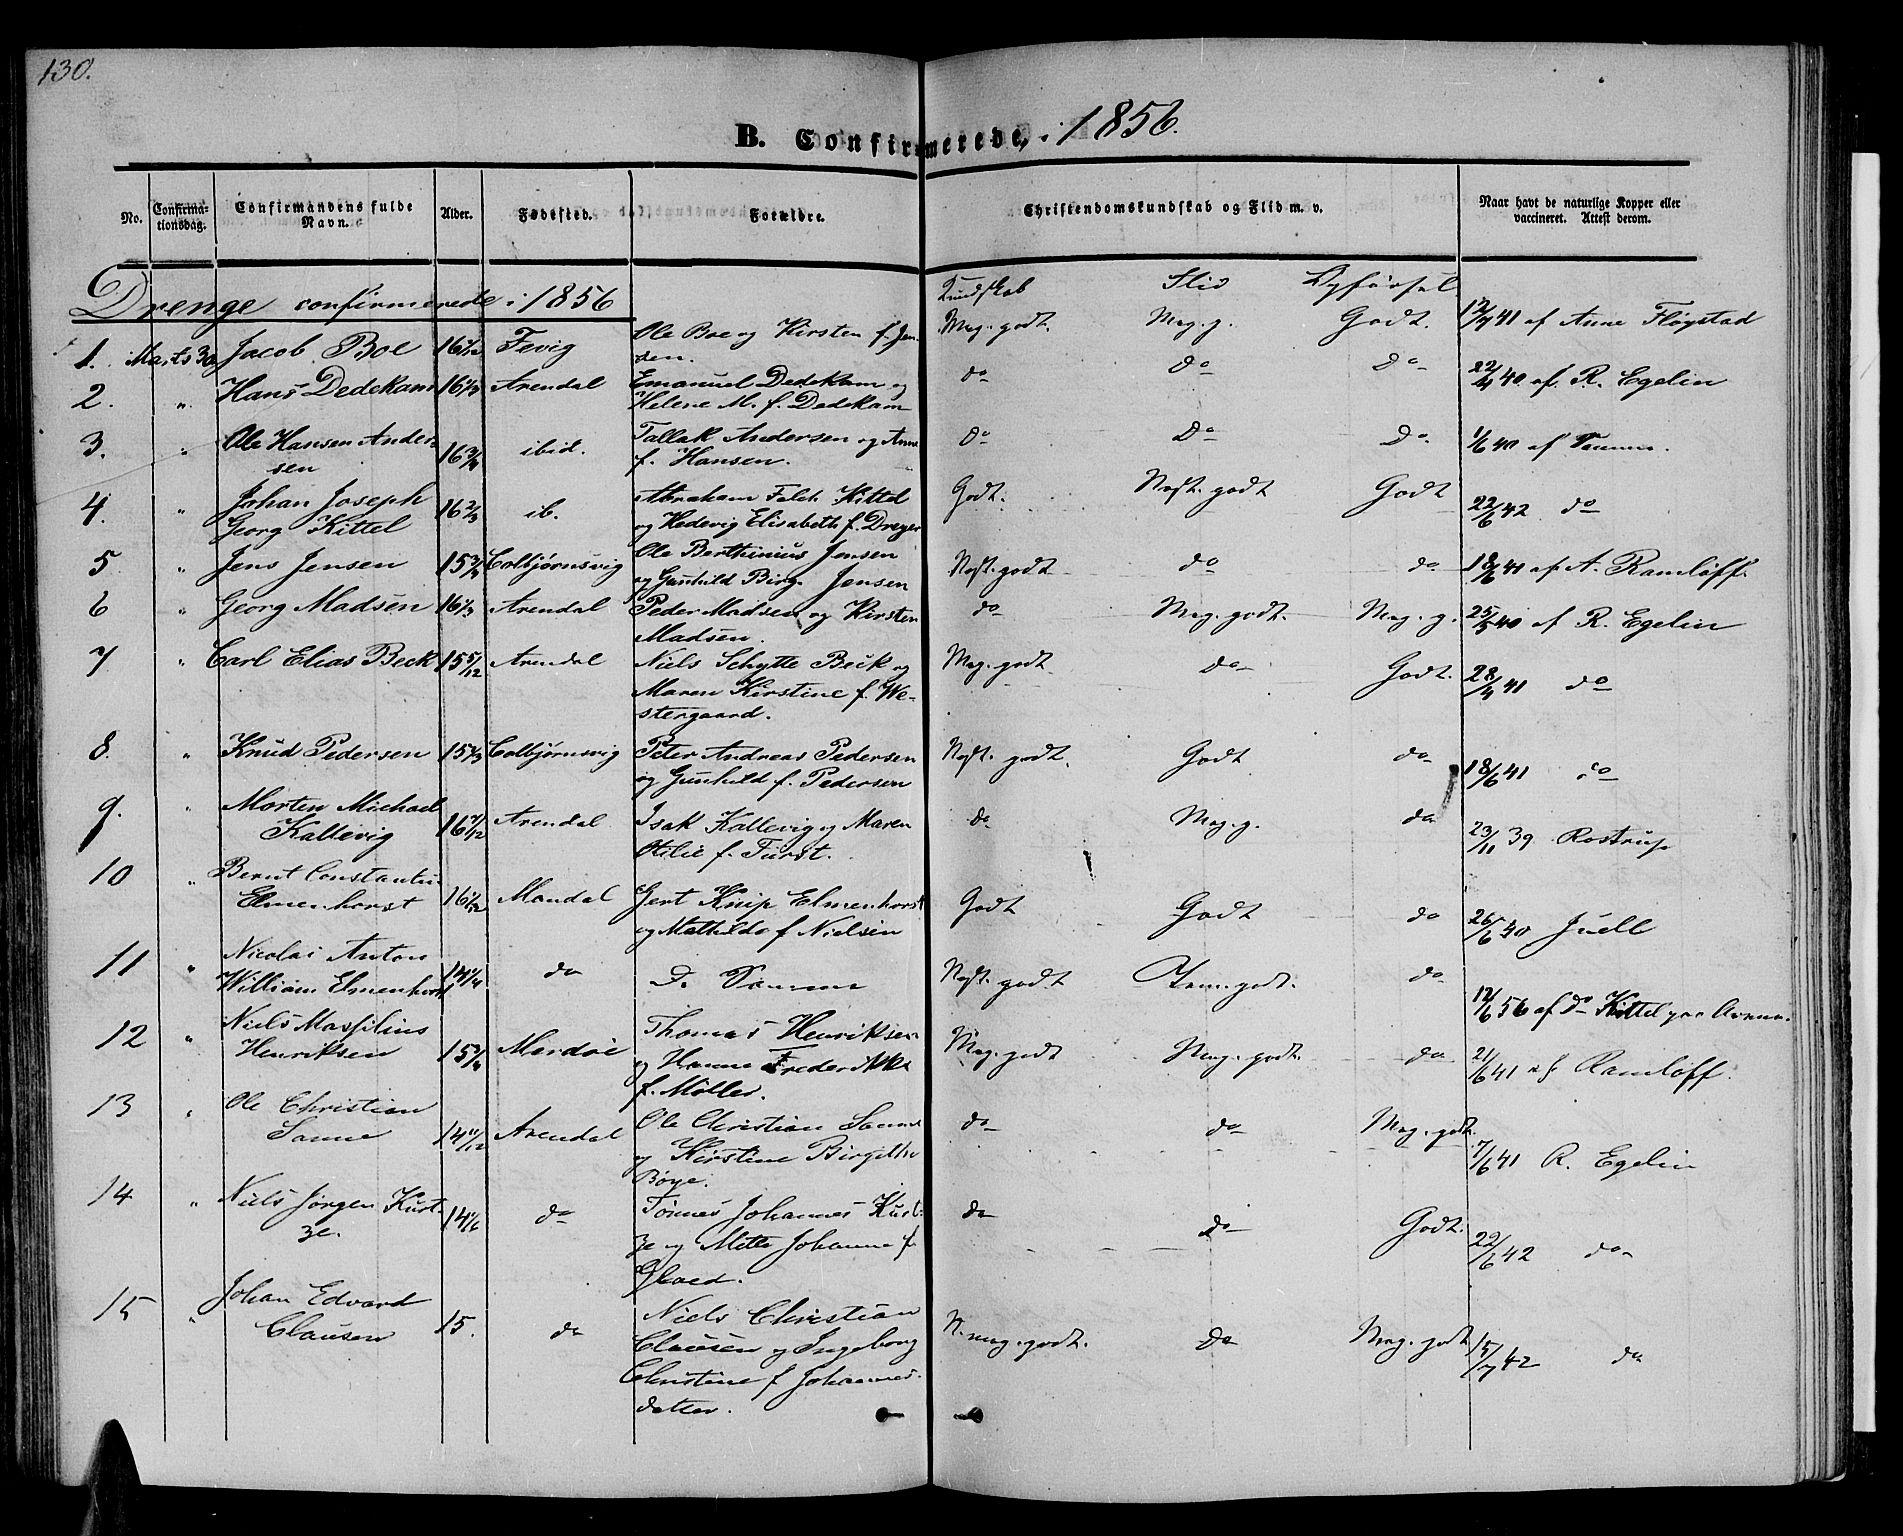 130.
B. Confirmerede, i 1856.
No.
Confirma-
tionsdag.
Confirmandens fulde
Navn.
Alder.
Fødested.
Forældre.
Christendomskundskab og Flid m. v.
Naar havt de naturlige Kopper eller
vaccineret. Attest derom.
Drenge confirmerede i 1856
Kundskab Flid Opførsel
1. Marts 30 Jacob Boe 16 1/12 Fevig Ole Boe og Kirsten f. Jen-
sen. Meg. godt. Meg. g. Godt. 12/7 41 af Anne Fløystad
2. " Hans Dedekam 16 1/3 Arendal Emanuel Dedekam og
Helene M. f. Dedekam do do do 22/4 40 af R. Egelin
3. " Ole Hansen Ander-
sen 16 3/4 ibid. Tallak Andersen og Anne
f. Hansen. do do do 1/6 40 af Samme.
4. " Johan Joseph
Georg Kittel 16 2/3 ib. Abraham Falck Kittel
og Hedevig Elisabeth f. Dreyer Godt. Nost. godt Godt 22/6 42 do
5 " Jens Jensen 15 3/4 Colbjørnsvig Ole Berthinius Jensen
og Gunhild Birg. Jensen Nost. godt do do 18/6 41 af A. Ramløff.
6 " Georg Madsen 16 1/3 Arendal Peder Madsen og Kirsten
Madsen. do Meg. godt. Meg. g. 25/5 40 af R. Egelin
7 " Carl Elias Beck 15 5/12 Arendal Niels Schytte Beck og
Maren Kirstine f. We-
stergaard. Meg. godt do Godt. 28/4 41 do
8. " Knud Pedersen 15 2/3 Colbjørnsvig Peter Andreas Pedersen
og Gunhild f. Pedersen Nost. godt. Godt do 18/6 41 do
9. " Morten Michael
Kallevig 16 7/12 Arendal Isak Kallevig og Maren
Otilie f. Fürst. do Meg. g. do 23/11 39 Rostrup
10 " Bernt Constantin
Elmenhorst 16 1/12 Mandal Gert Knip Elmenhorst
og Mathilde f Nielsen Godt Godt do 26/6 40 Juell
11 " Nicolai Anton
William Elmenhorst 14 1/4 do De Samme Nost. godt Tem. godt. do 12/6 56 af Do Kittel
12 " Niels Massilius
Henriksen 15 3/4 Merdøe Thomas Henriksen
og Hanne Frederikke
f. Møller. Meg. godt Meg. godt. do 21/6 41 af Ramløff.
13 " Ole Christian
Sanne 14 11/12 Arendal Ole Christian Sanne
og Kirstine Birgitte
Bøye. do do Meg. godt. 7/6 41 R. Egelin
14 " Niels Jørgen Kurt-
ze. 14 1/6 do Tønnes Johannes Kurt-
ze og Mette Johanne f.
Gloed. do do Godt. 22/6 42 do
15 " Johan Edvard
Clausen 15. do Niels Christian
Clausen og Ingeborg
Christine f Johannes-
datter. N. meg. godt. do Meg. godt 15/7 42 do